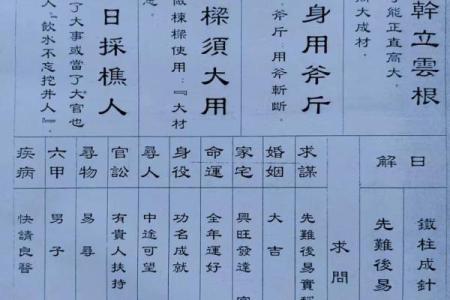 幹立雲根
能正直高大。
高大成材。
身用斧斤
斧斤：用斧斬斷。
樑須大用
做棟樑使用：『大材
日採樵人
了大事或當了大官也
人『飲水不忘挖井人』。
日解
鐵柱成針
先難後易
求問
求謀
先難後易實稱
婚姻
大吉
家宅
興旺發達
命運
全年運好
身役
功名成就
尋人
中途可望
官訟
有貴人扶持
尋物
易尋
六甲
男子
疾病
快請良醫